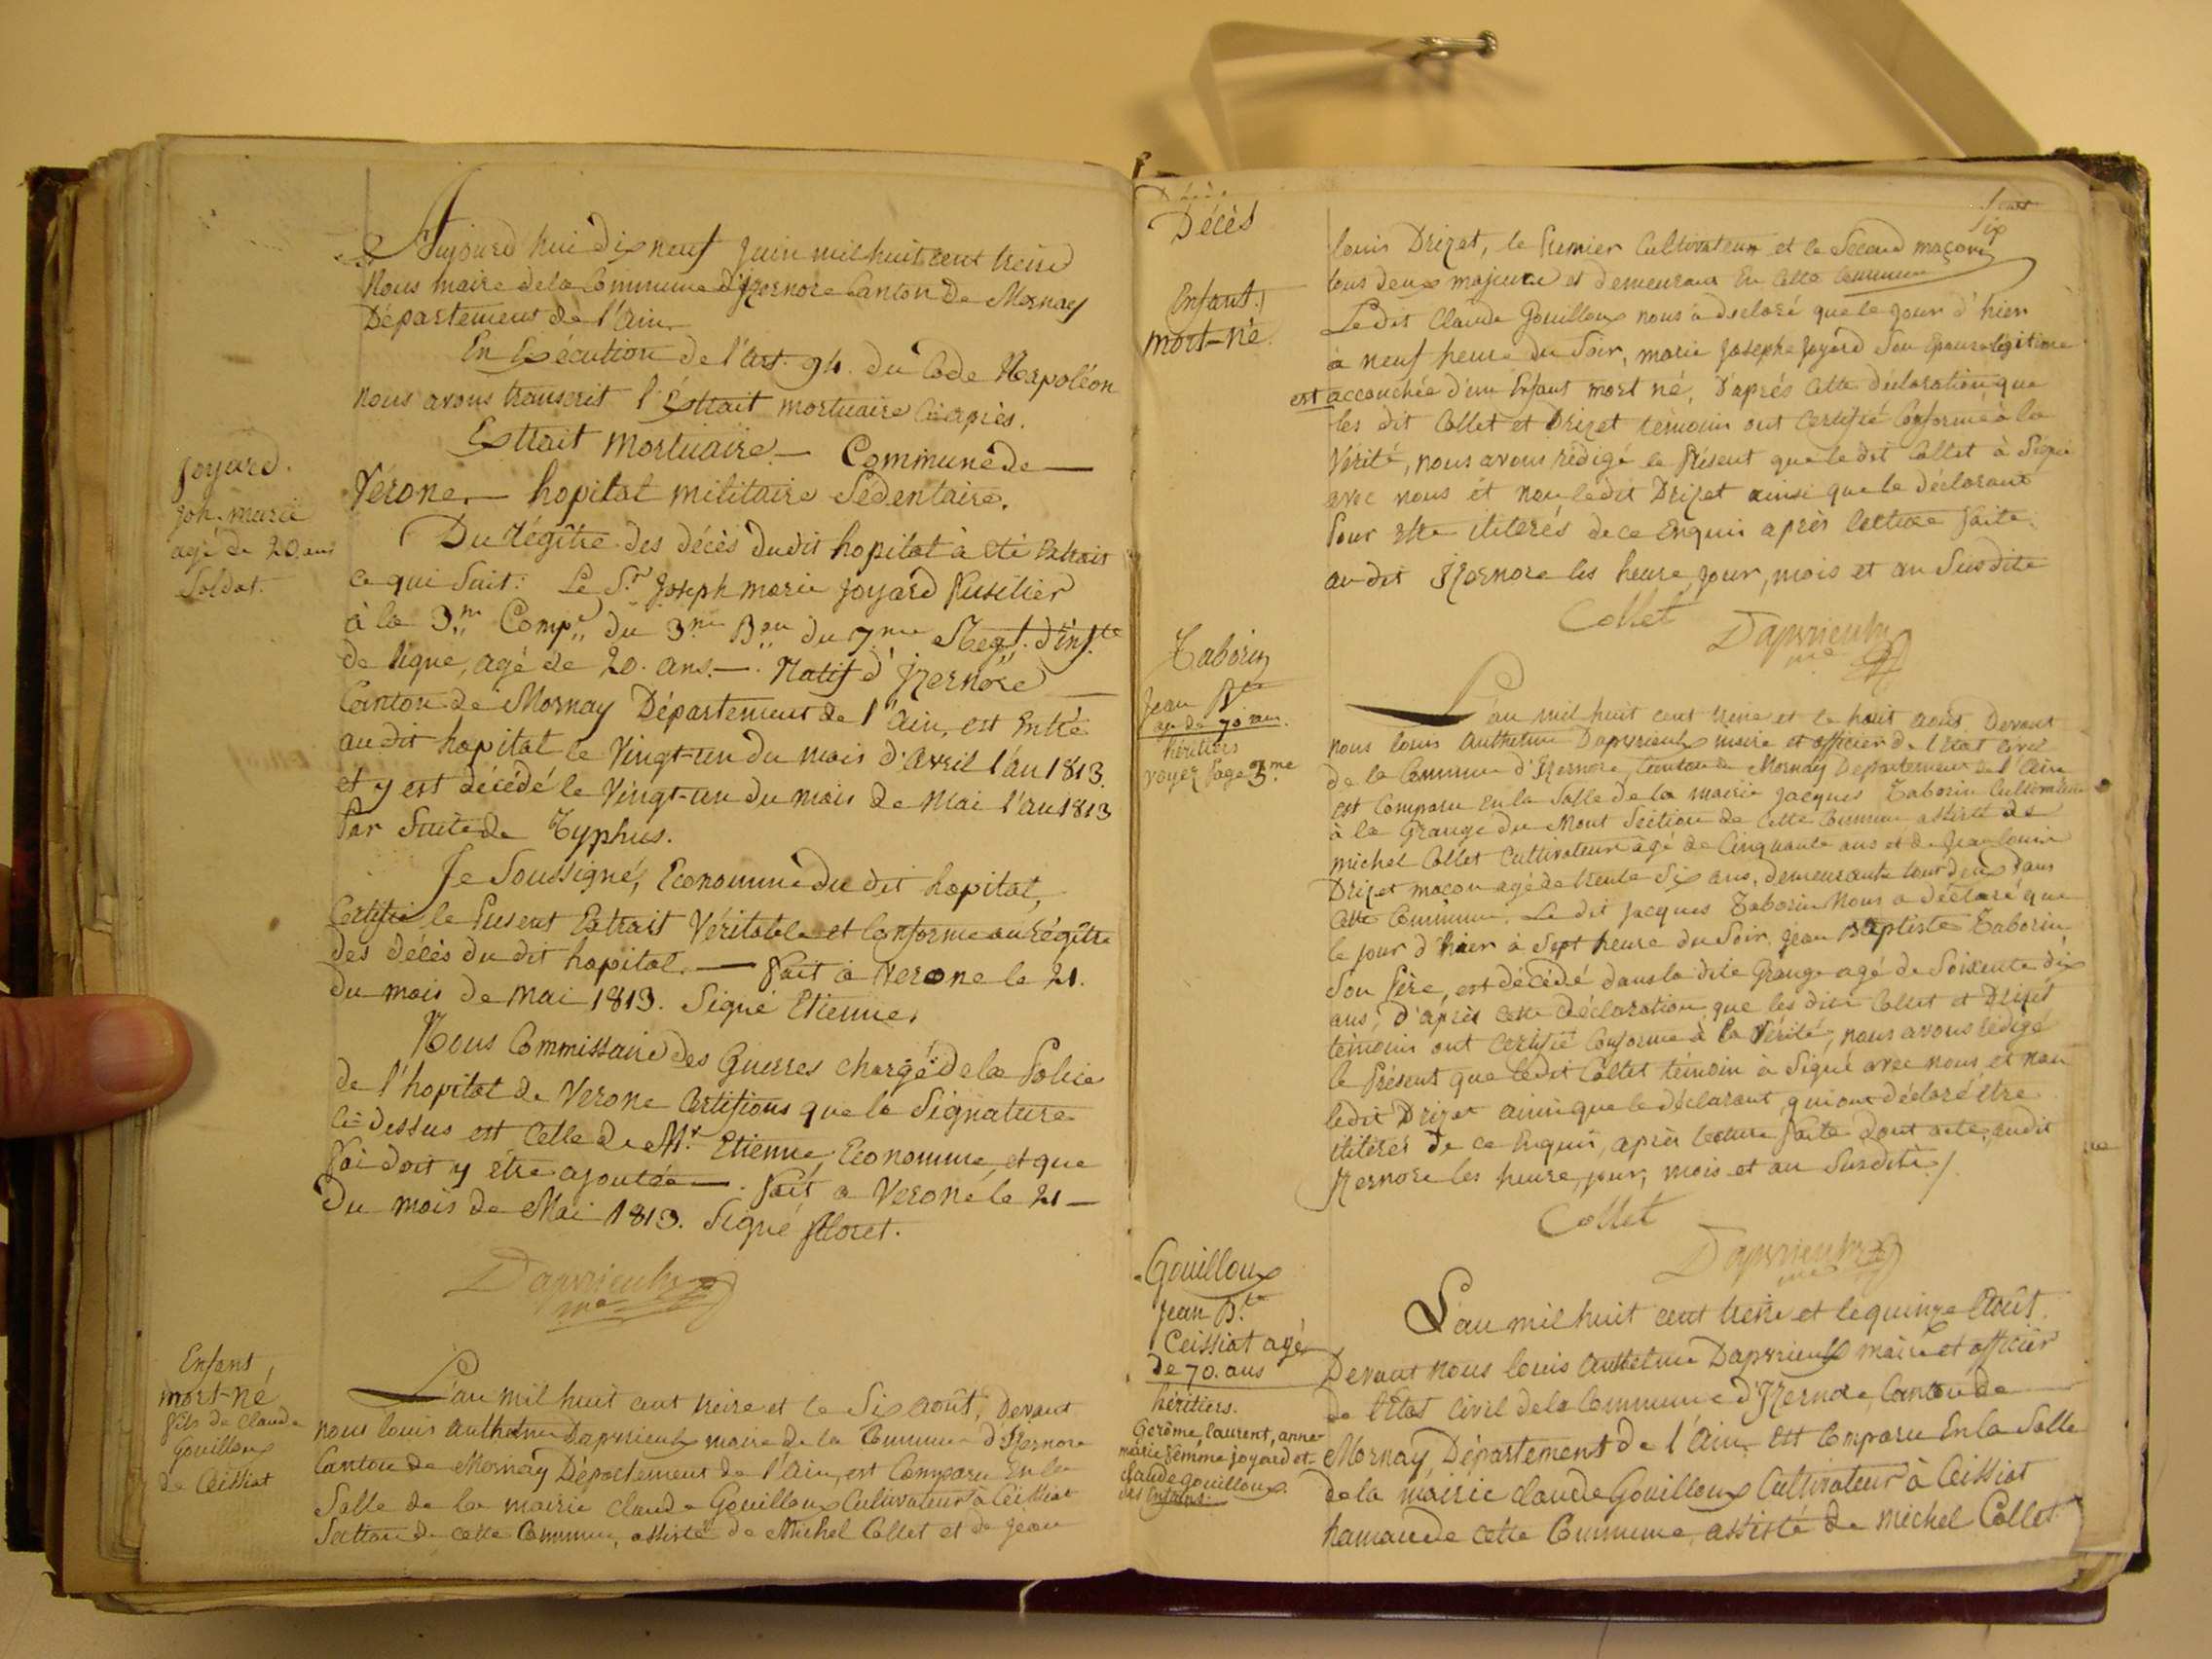 Aujourd'hui dix neuf juin mil huit cent treize
Nous maire de la Commune d'Izernore Canton de Mornay
Département de l'ain
En Exécution de l'art. 94. du Code Napoléon
nous avons transcrit l'Extrait mortuaire ci après.
Extrait mortuaire — Commune de —
Vérone. — hopital militaire Sédentaire.
Joyard.
Jph. marie
agé de 20. ans
Soldat.
Du régître des décès dudit hopital à été Extrait
ce qui Suit: Le Sr. Joseph marie Joyard Fusilier
à la 3me Compe du 3me Bon du 7me Regt. d'infte
de ligne, agé de 20. ans. — Natif d'Izernore —
Canton de Mornay Département de l'Ain, est Entré
au dit hopital le Vingt-un du mois d'Avril l'an 1813.
et y est décédé le Vingt-un du mois de Mai l'an 1813
Par Suite de Typhus.
Je Soussigné, Econome du dit hopital,
Certifie le Présent Extrait Véritable et Conforme au régître
des décès du dit hopital. — Fait à Verone le 21.
du mois de Mai 1813. Signé Etienne.
Nous Commissaire des Guerres chargé de la Police
de l'hopital de Verone Certifions que la Signature
ci-dessus est Celle de Mr Etienne Econome, et que
Foi doit y être ajoutée —. Fait à Verone le 21 —
du mois de Mai 1813. Signé Floret.
Enfant
mort-né
fils de claude
Gouilloux
de Ceissiat
L'an mil huit cent treize et le Six août, Devant
nous louis Anthelme Dapvrieulx maire de la Commune d'Izernore
Canton de Mornay Département de l'Ain, est Comparu En la
Salle de la mairie claude Gouilloux Cultivateur à Ceissiat
Section de cette Commune, assisté de Michel Collet et de Jean
Décès
Six
louis Drizet, le Premier Cultivateur et le Second maçon
tous deux majeurs et demeurant En Cette Commune
Enfant
mort-né.
Le dit Claude Gouilloux nous à déclaré que le jour d'hier
à neuf heure du Soir, marie Josephe Joyard Son Epouse légitime
est accouchée d'un Enfant mort né, D'après Cette déclaration que
les dit Collet et Drizet témoins ont Certifié Conforme à la
Vérité, nous avons rédigé le Présent que le dit Collet à Signé
avec nous et non ledit Drizet ainsi que le déclarant
Pour être iliterés de ce Enquis après lecture faite
au dit Izernore les heure, jour, mois et an Susdite
Collet Dapvrieulx
me
Taborin
Jean Bte
agé de 70 ans.
héritiers
voyez Page 3me
L'an mil huit cent treize et le huit août Devant
nous louis Anthelme Dapvrieulx maire et officier de l'état civil
de la Commune d'Izernore, Canton de Mornay Département de l'Ain
est Comparu En la Salle de la mairie Jacques Taborin Cultivateur
à la Grange du Mont Section de Cette Commune assisté de
michel Collet Cultivateur agé de Cinquante ans et de Jean louis
Drizet maçon agé de trente Six ans, demeurants tout deux dans
Cette Commune. Le dit Jacques Taborin Nous a déclaré que
le jour d'hier à Sept heure du Soir, Jean Baptiste Taborin
Son Père, est décédé dans la dite Grange agé de Soixante dix
ans, D'après Cette déclaration que les dits Collet et Drizet
témoins ont Certifié Conforme à la Vérité, nous avons rédigé
le Présent que ledit Collet témoin à Signé avec nous, et non
ledit Drizet ainsi que le déclarant, qui ont déclaré être
iliterés de ce Enquis, après lecture faite dont acte, audit
Izernore les heure, jour, mois et an Susdite./
Collet
Dapvrieulx
me
Gouilloux
Jean Bte
Ceissiat agé
de 70. ans
héritiers.
Gerôme, laurent, anne
marie femme Joyard et
claude gouilloux
ses Enfans.
L'an mil huit cent treize et le quinze Août.
Devant nous louis Anthelme Dapvrieulx maire et officier
de l'Etat Civil de la Commune d'Izernore, Canton de
Mornay Département de l'Ain, est Comparu En la Salle
de la mairie claude Gouilloux Cultivateur à Ceissiat
hamau de cette Commune, assisté de michel Collet